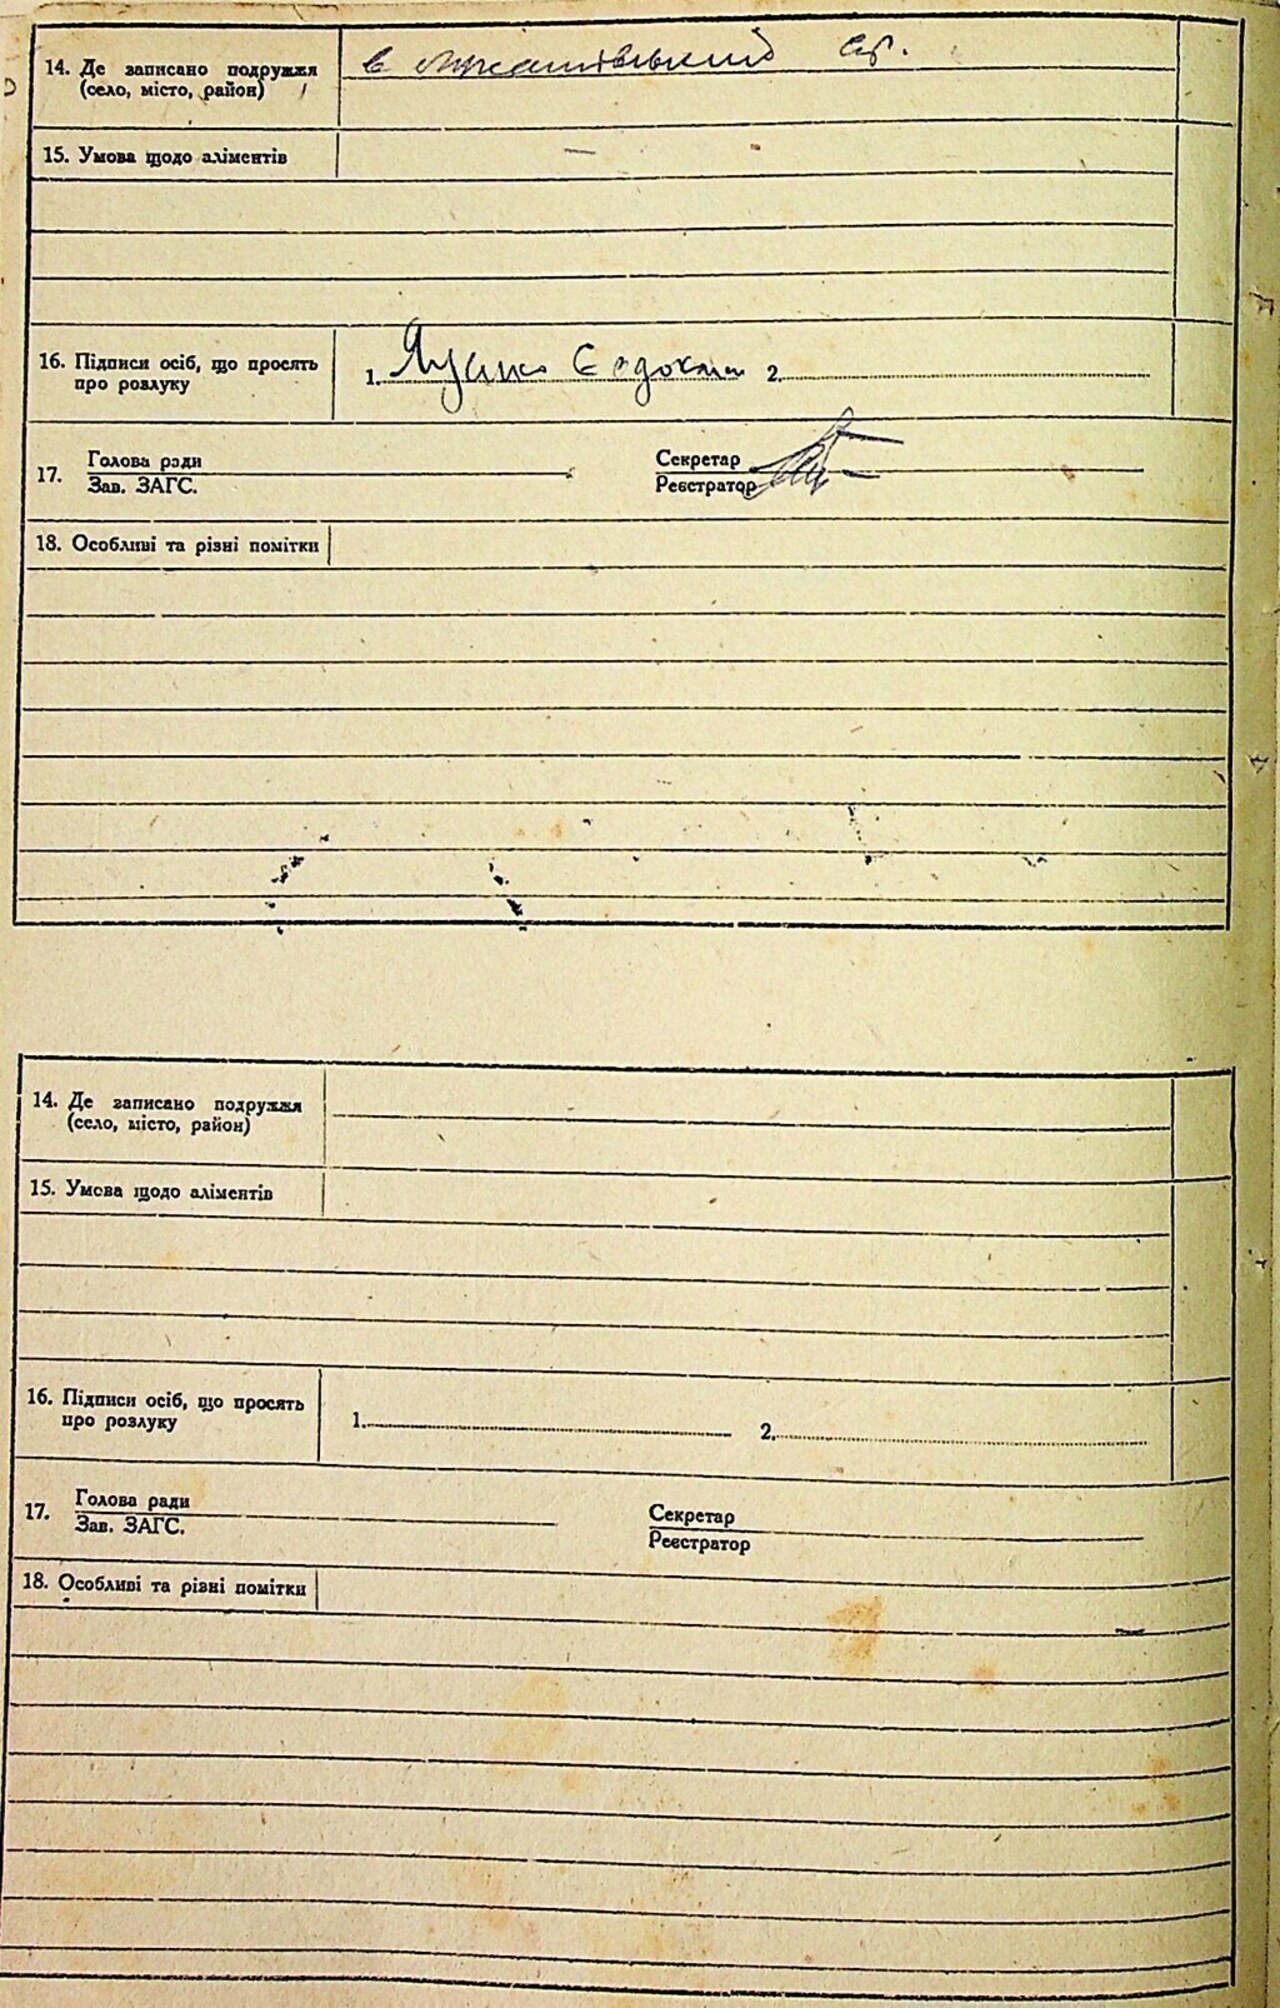 14. Де записано подружжя
(село, місто, район)
в ср.
15. Умова щодо аліментів —
16. Підписи осіб, що просять
про розлуку
1. 2.
17. Голова ради
Зав. ЗАГС.
Секретар
Реєстратор
18. Особливі та різні помітки
14. Де записано подружжя
(село, місто, район)
15. Умова щодо аліментів
16. Підписи осіб, що просять
про розлуку
1. 2.
17. Голова ради
Зав. ЗАГС.
Секретар
Реєстратор
18. Особливі та різні помітки